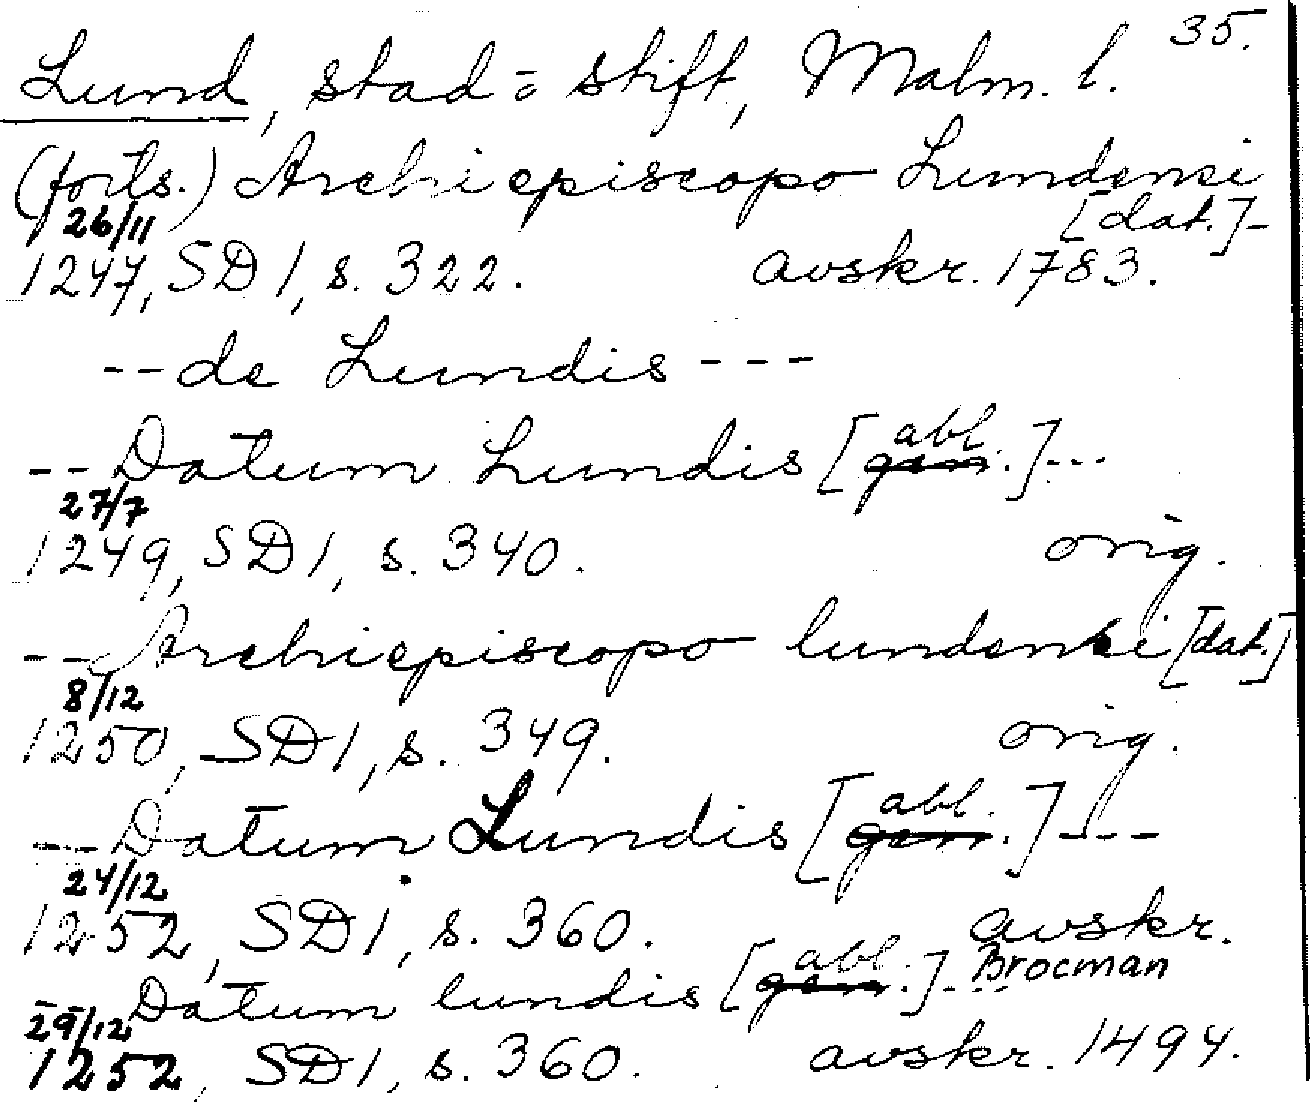 35.
Lund, stad = stift, Malm. l.
(forts.) Archiepiscopo Lundensi
[dat.]-
26/11
1247, SD 1, s. 322. avskr. 1783.
-- de Lundis ---
-- Datum Lundis [gen. abl.]---
27/7
1249, SD 1, s. 340. orig.
-- Archiepiscopo lundensi [dat.]
8/12
1250, SD 1, s. 349. orig.
-- Datum Lundis [gen. abl.]---
24/12
1252, SD 1, s. 360. avskr.
Brocman
-- Datum lundis [gen. abl.]---
29/12
1252, SD 1, s. 360. avskr. 1494.